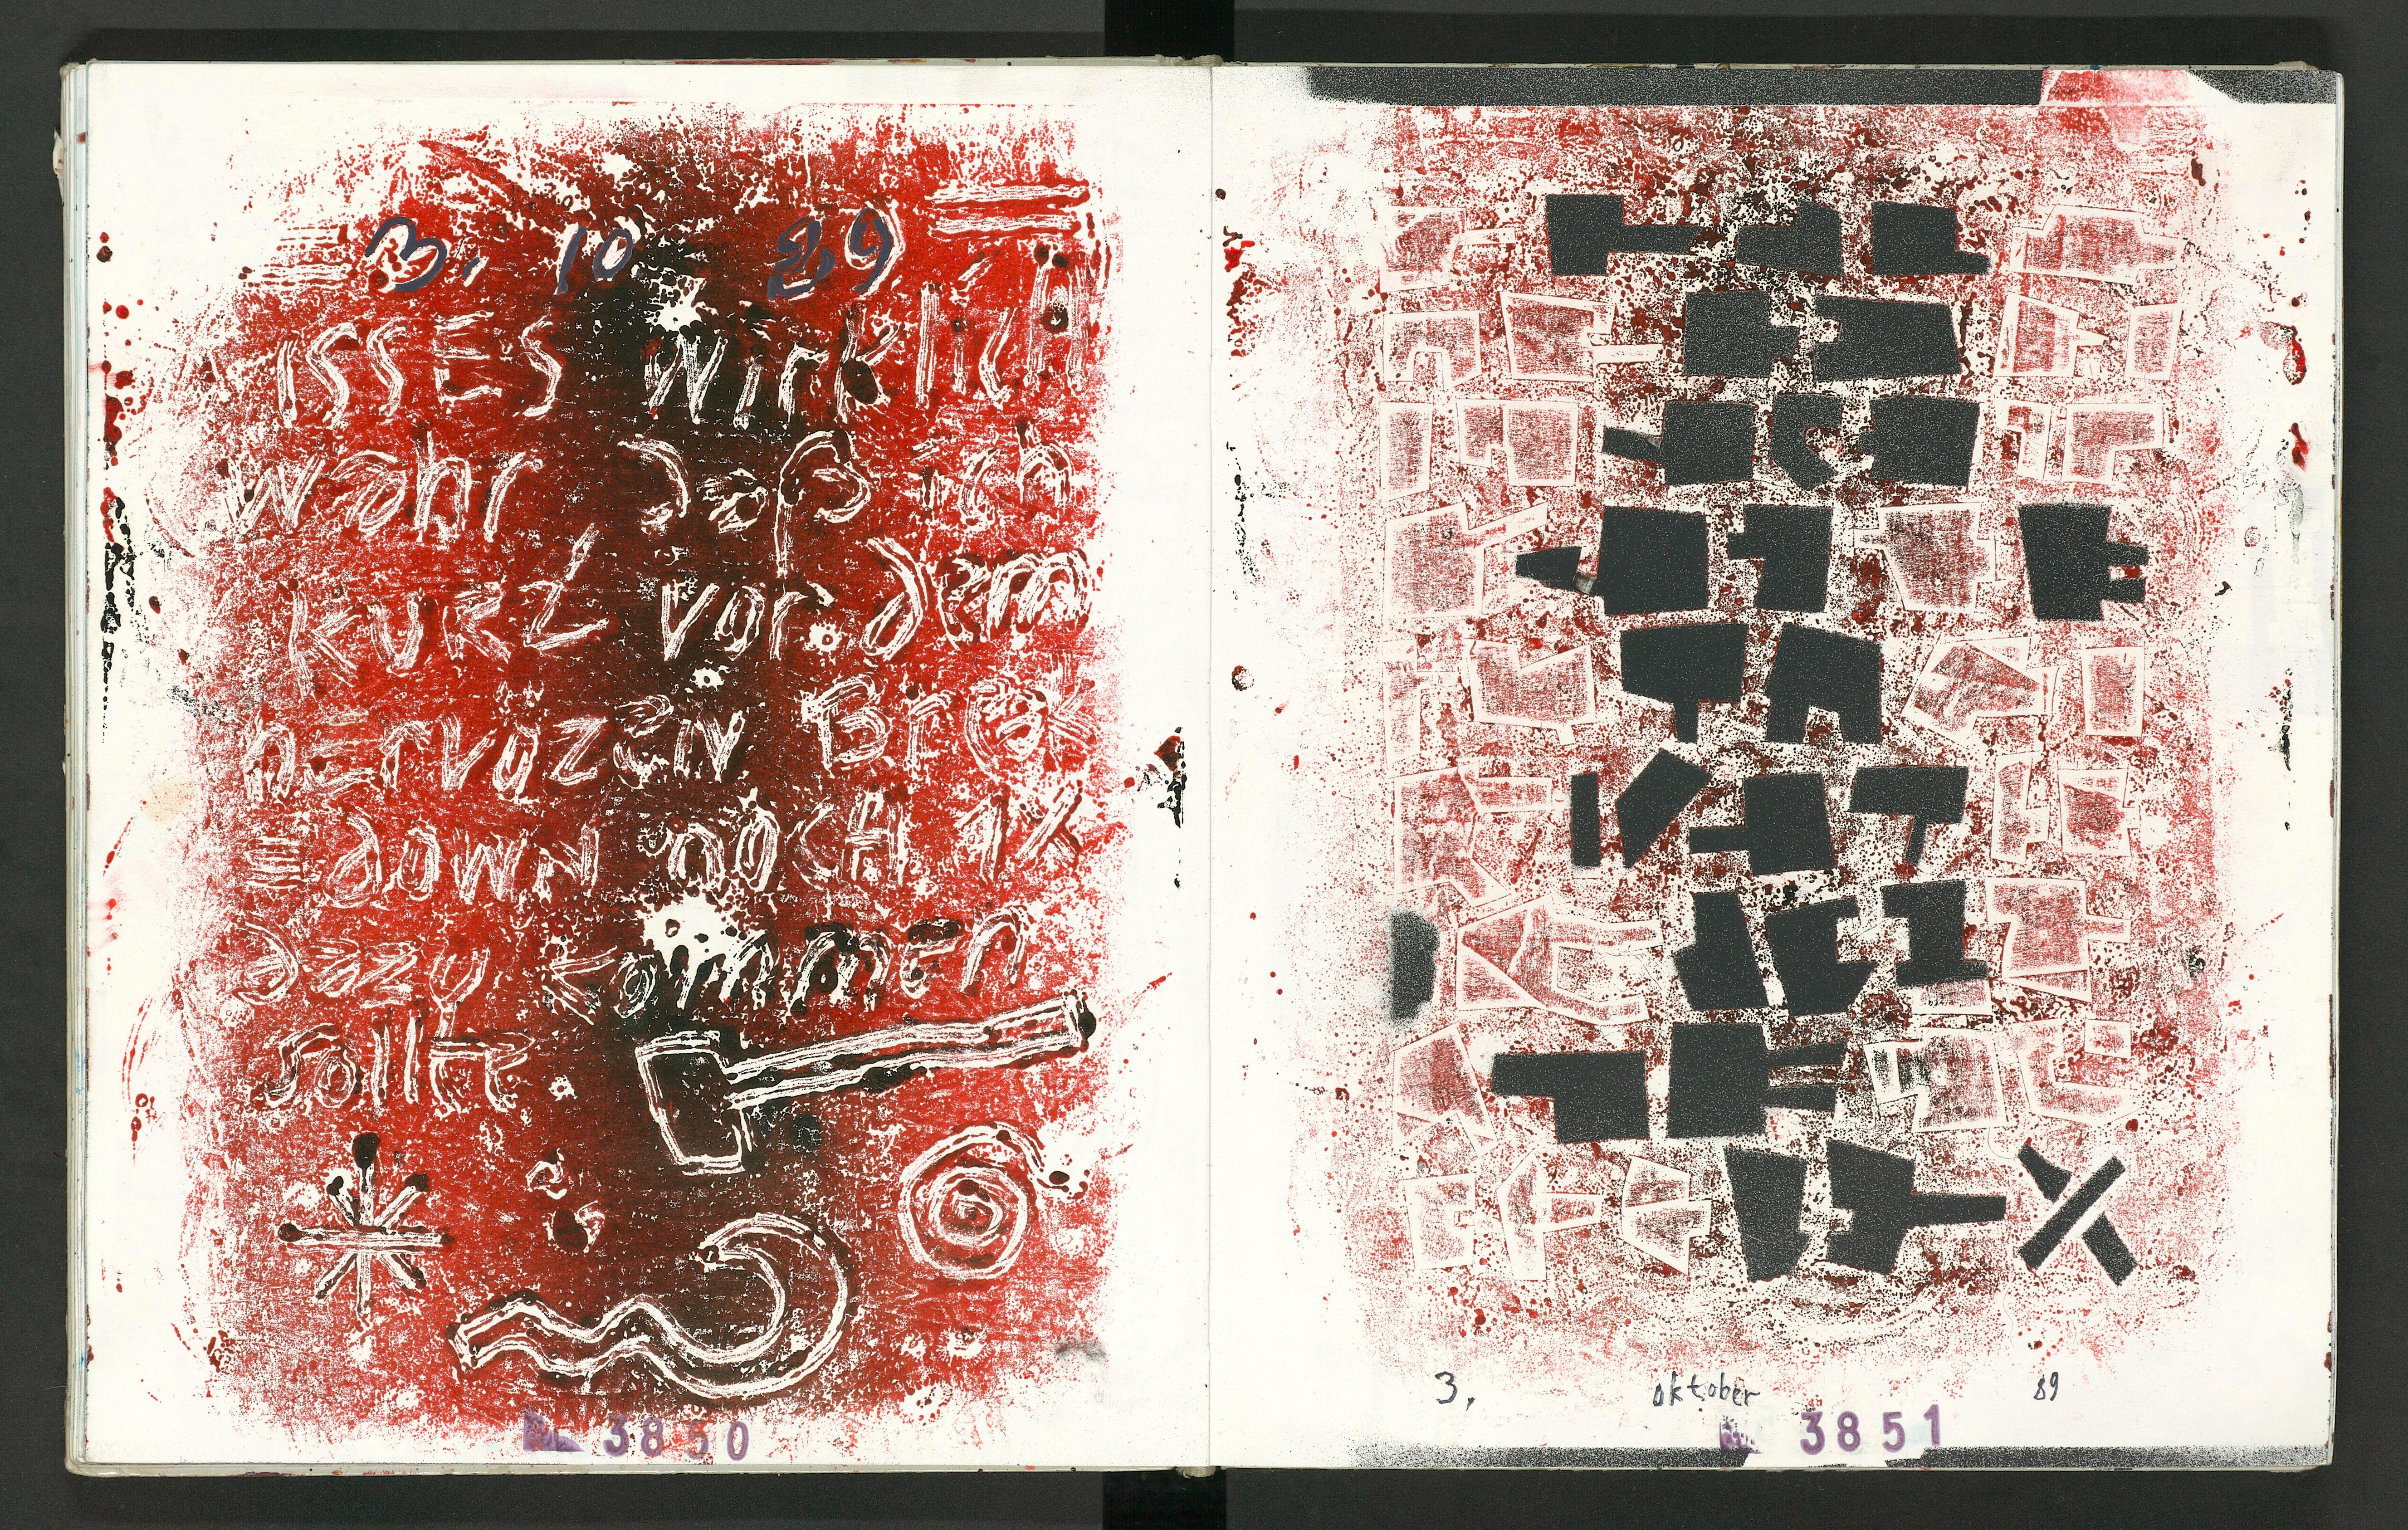 3. 10 89
ISSES WirklicH
wahr daß ich
KURZ vor dem
nErvözEN BrEk
=dowN nOCH 1X
dazu kommen
solltE
3850
3. oktober 89
3851